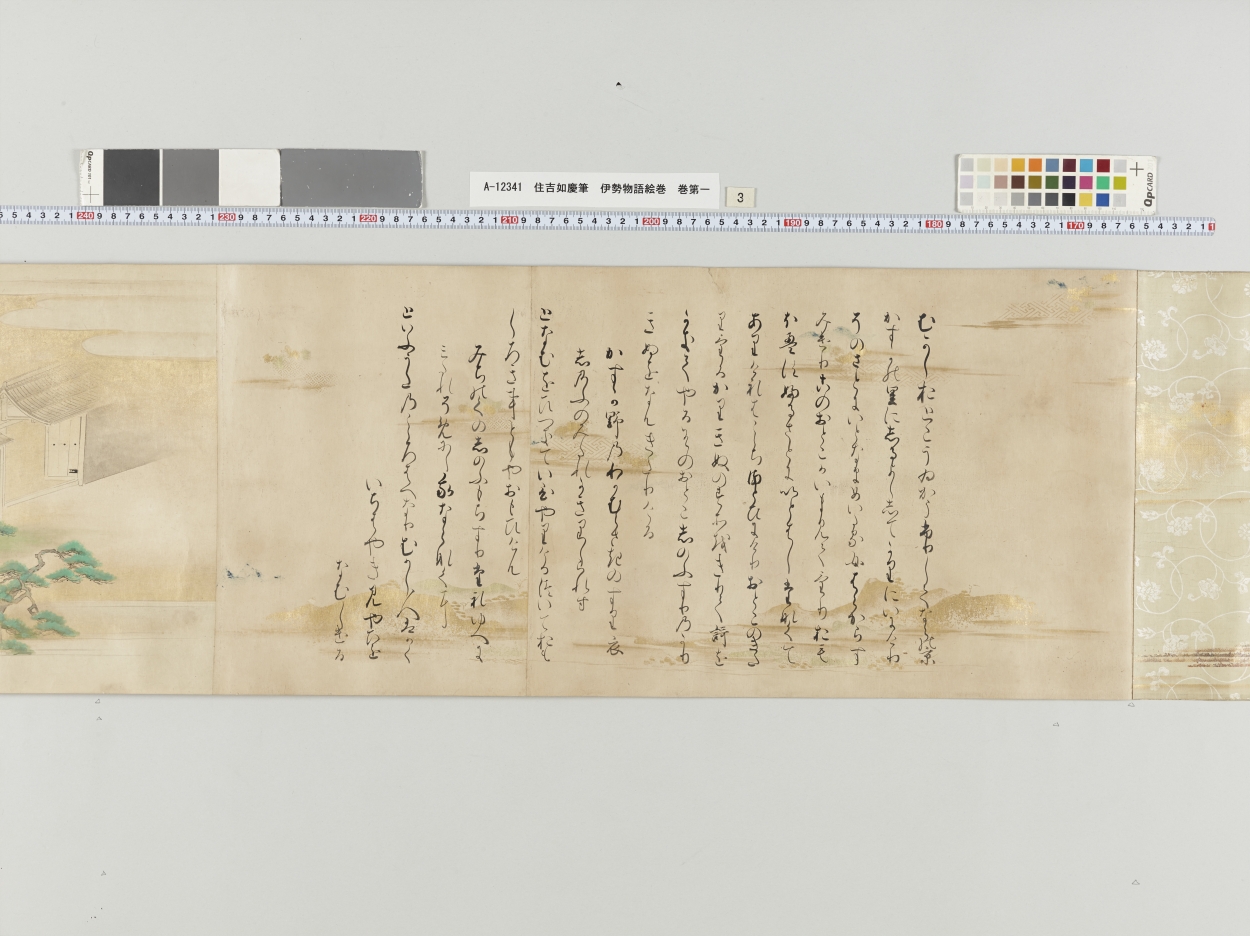 A-12341 住吉如慶筆 伊勢物語絵巻 巻第一
3
むかしおとこうゐかうふりしてなら能京
かすか能里に志るよししてかりにいにけり
そのさとにいとなまめいたる女はらからすみ
けりこのおとこかいまみてけりおもほ
えすふるさとにいとはしたなくて
ありけれはこゝちまとひにけりおとこのきた
りけるかりきぬのすそをきりて哥を
かきてやるそのおとこ志のふすりのかり
きぬをなんきたりける
かすか野乃わかむらさきのすり衣
志乃ふのみたれかきりしられす
となむをひつきていひやりけるついておも
しろきことゝやおもひけん
みちのくの志のふもちすりたれゆへに
みたれそめにし我ならなくに
といふうた乃こゝろはへなりむかし人はかく
いちはやきみやひを
なむしける